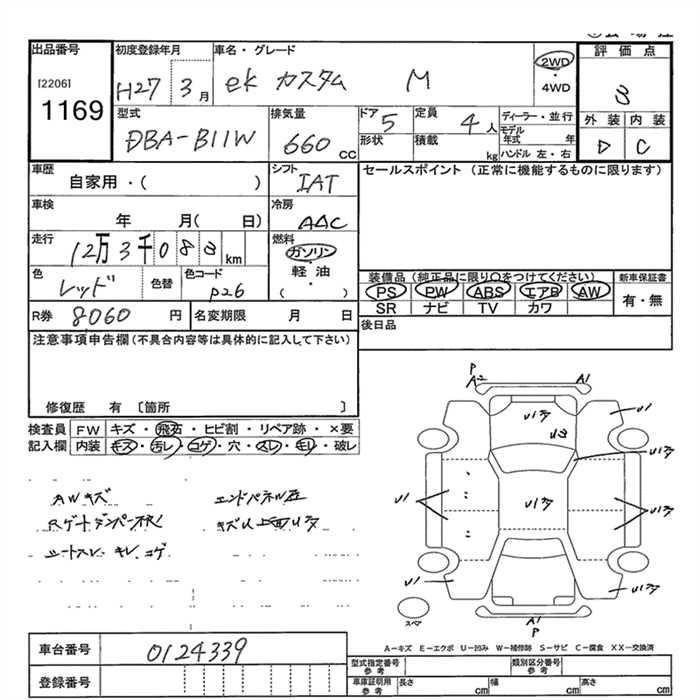 出品番号
[2206]
1169
初度登録年月
H27 3月
車名・グレード
ek カスタム M
2WD
・
4WD
評価点
3
外装 内装
D C
型式
DBA-B11W
排気量
660 CC
ドア
5
形状
定員
4人
積載
kg
ディーラー・並行
モデル
年式 年
ハンドル 左・右
車歴
自家用・( )
シフト
IAT
セールスポイント (正常に機能するものに限ります)
車検
年 月( 日)
冷房
AAC
走行
12万3千083 km
燃料
ガソリン
・
軽・油
( )
色
レッド
色替
色コード
P26
装備品 (純正品に限り○をつけてください)
PS PW ABS エアB AW
SR ナビ TV カワ
新車保証書
有・無
R券 8060 円
名変期限 月 日
後日品
注意事項申告欄 (不具合内容等は具体的に記入して下さい)
修復歴 有 〔箇所 〕
検査員 FW キズ・飛石・ヒビ割・リペア跡・×要
記入欄 内装 キズ・汚レ・コゲ・穴・スレ・モレ・破レ
AWキズ
Rゲートダンパー不良
シートスレ キレ コゲ
エンドパネル歪
P
A2
A1
U1
U3
U1
U1
U1
A1
P
スペア
車台番号 0124339
登録番号
A－キズ E－エクボ U－凹み W－補修跡 S－サビ C－腐食 XX－交換済
型式指定番号
参考
類別区分番号
参考
車庫証明用
参考
長さ cm 幅 cm 高さ cm